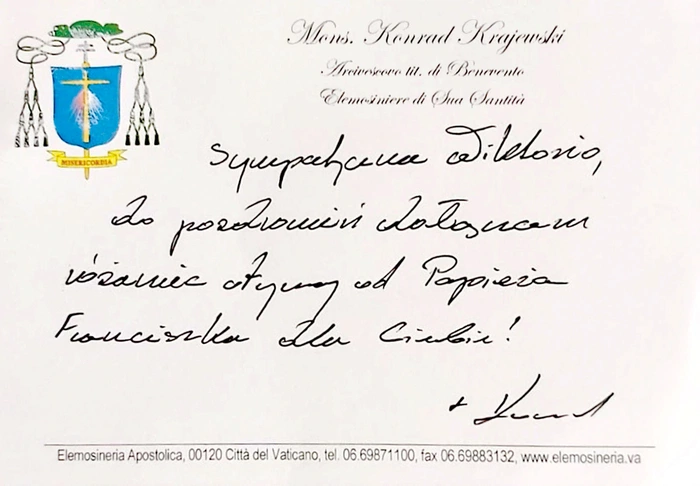 Mons. Konrad Krajewski
Arcivescovo tit. di Benevento
Elemosiniere di Sua Santità
MISERICORDIA
Sympatyczna Wiktorio,
do pozdrowień dołączam
różaniec otrzymany od Papieża
Franciszka dla Ciebie!
+ Konrad
Elemosineria Apostolica, 00120 Città del Vaticano, tel. 06.69871100, fax 06.69883132, www.elemosineria.va